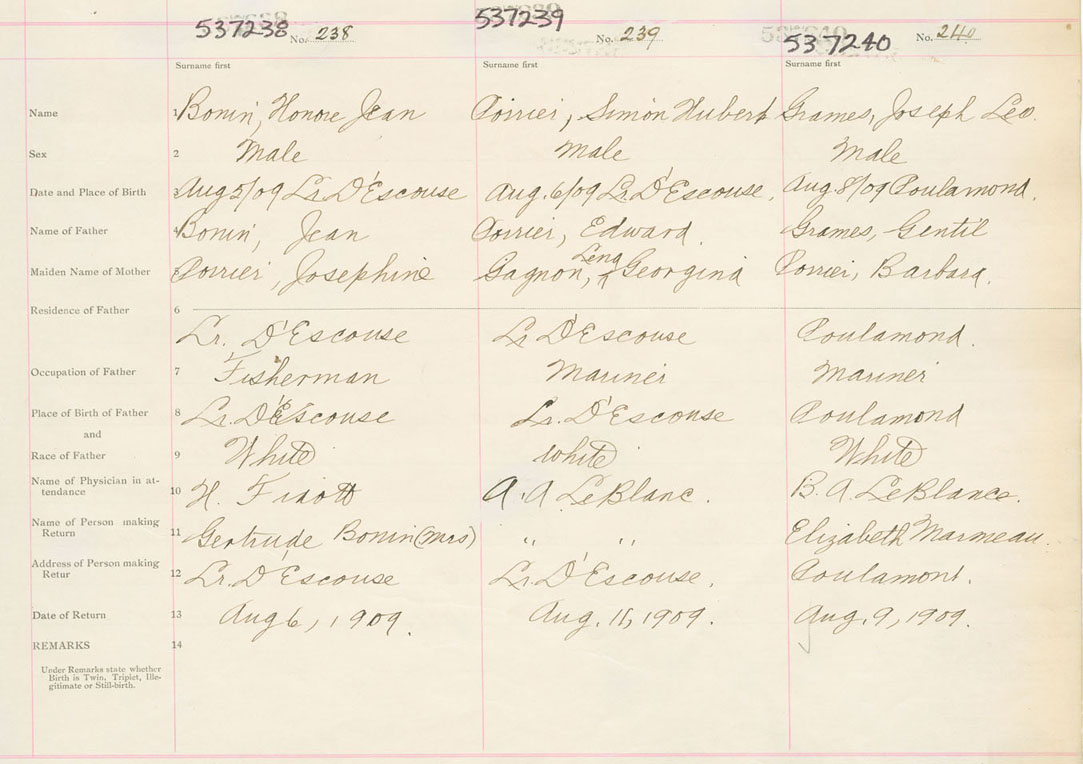 537238 No. 238 537239 No. 239 537240 No. 240
Surname first Surname first Surname first
Name 1 Bonin, Honore Jean Poirier, Simon Hubert Grames, Joseph Leo.
Sex 2 Male Male Male
Date and Place of Birth 3 Aug 5/09 Lr. D'Escouse Aug. 6/09 Lr. D'Escouse. Aug. 8/09 Poulamond.
Name of Father 4 Bonin, Jean Poirier, Edward. Grames, Gentil
Maiden Name of Mother 5 Poirier, Josephine Gagnon, Lena Georgina Poirier, Barbara.
Residence of Father 6
Lr. D'Escouse Lr D'Escouse Poulamond.
Occupation of Father 7 Fisherman Mariner Mariner
Place of Birth of Father 8 Lr. D'Escouse Lr. D'Escouse Poulamond
and
Race of Father 9 White white White
Name of Physician in at-
tendance 10 H. A. A LeBlanc. B. A. LeBlance.
Name of Person making
Return 11 Gertrude Bonin (Mrs) " " Elizabeth Marmeau.
Address of Person making
Retur 12 Lr. D'Escouse Lr. D'Escouse. Poulamont.
Date of Return 13 Aug 6, 1909. Aug. 11, 1909. Aug. 9, 1909.
REMARKS 14
Under Remarks state whether
Birth is Twin, Triplet, Ille-
gitimate or Still-birth.